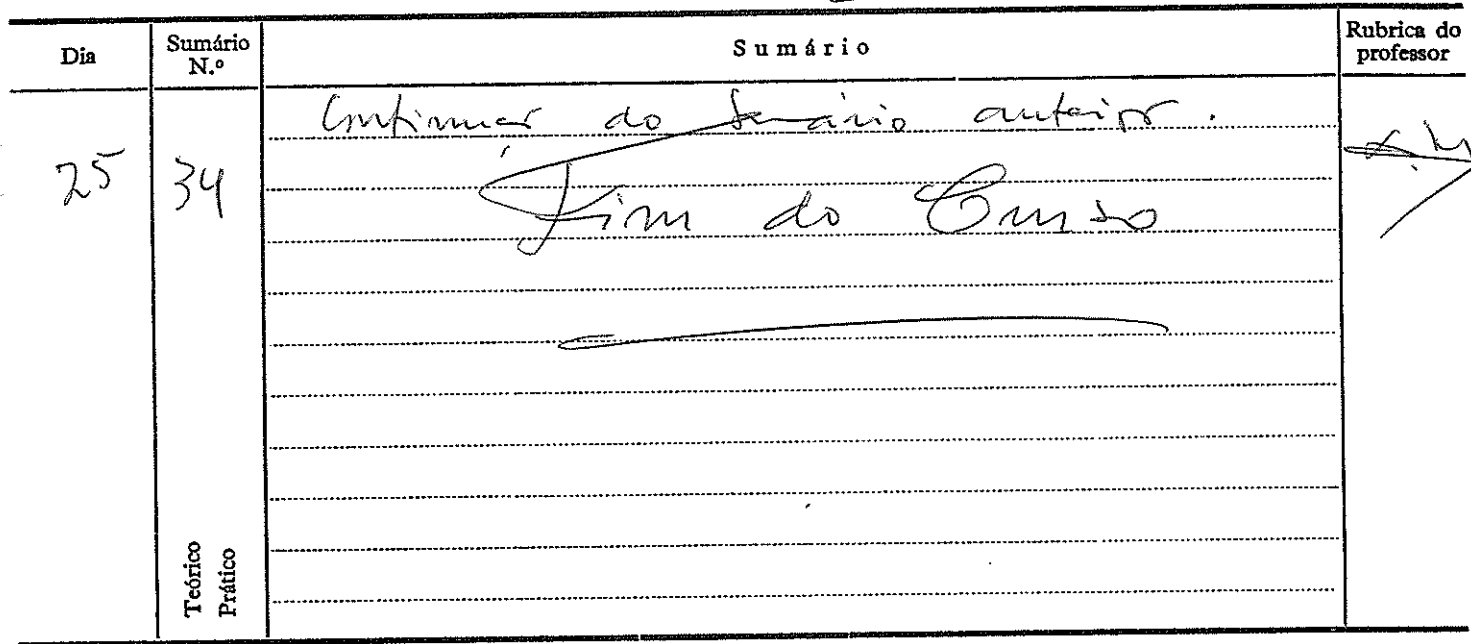 Dia
Sumário N.º
Sumário
Rubrica do professor
25
34
Continuar do Sumário anterior.
Fim do Curso
Teórico
Prático